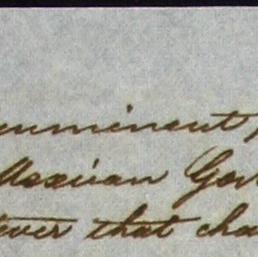 imminent
Mexican Gov
ever that cha